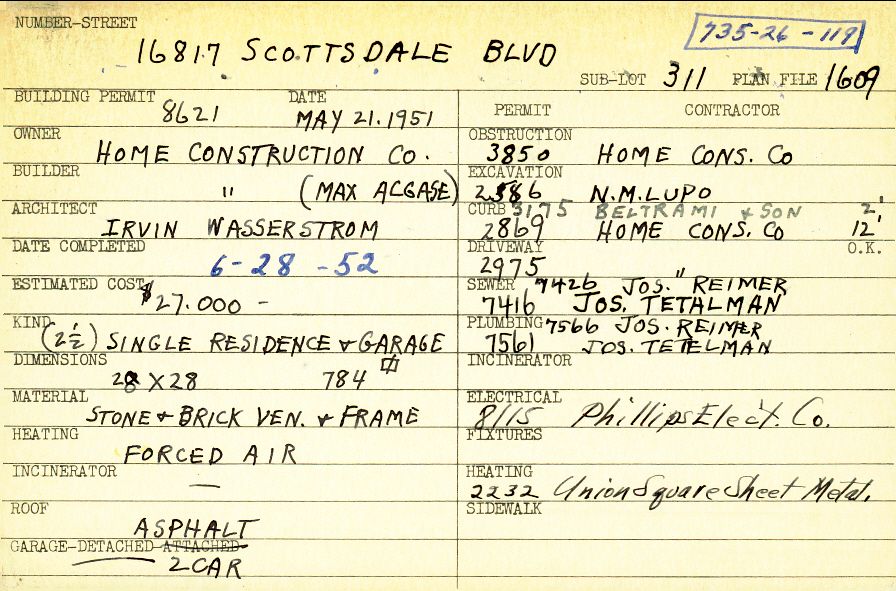 NUMBER-STREET
735-26-119
16817 SCOTTSDALE BLVD
SUB-LOT 311 PLAN FILE 1609
BUILDING PERMIT 8621 DATE MAY 21.1951
OWNER HOME CONSTRUCTION CO.
BUILDER " (MAX ACGASE)
ARCHITECT IRVIN WASSERSTROM
DATE COMPLETED 6-28-52
ESTIMATED COST $27.000 -
KIND (2½) SINGLE RESIDENCE & GARAGE
DIMENSIONS 28 X 28 784
MATERIAL STONE & BRICK VEN. & FRAME
HEATING FORCED AIR
INCINERATOR —
ROOF ASPHALT
GARAGE-DETACHED-ATTACHED-
2 CAR
PERMIT CONTRACTOR
OBSTRUCTION
3850 HOME CONS. CO
EXCAVATION
2586 N.M.LUPO
CURB 3175 BELTRAMI & SON 2'
2869 HOME CONS. CO 12'
DRIVEWAY O.K.
2975 "
SEWER 7426 JOS. REIMER
7416 JOS. TETALMAN
PLUMBING 7566 JOS. REIMER
7561 JOS. TETELMAN
INCINERATOR
ELECTRICAL
8115 Phillips Elect. Co.
FIXTURES
HEATING
2232 Union Square Sheet Metal.
SIDEWALK